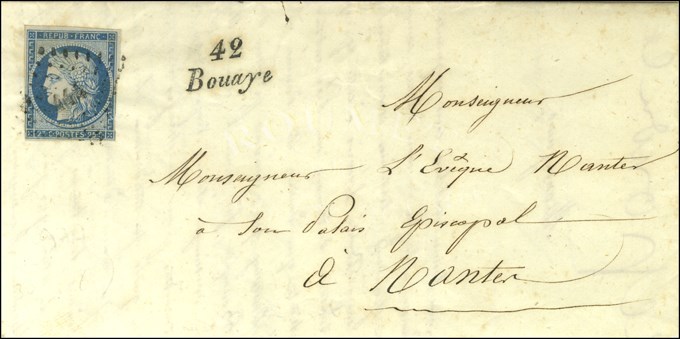 REPUB. FRANC.
25 C. POSTES 25 C.
42
Bouaye
Monseigneur
Monseigneur L'Evêque Nantes
à Son Palais Episcopal
à Nantes